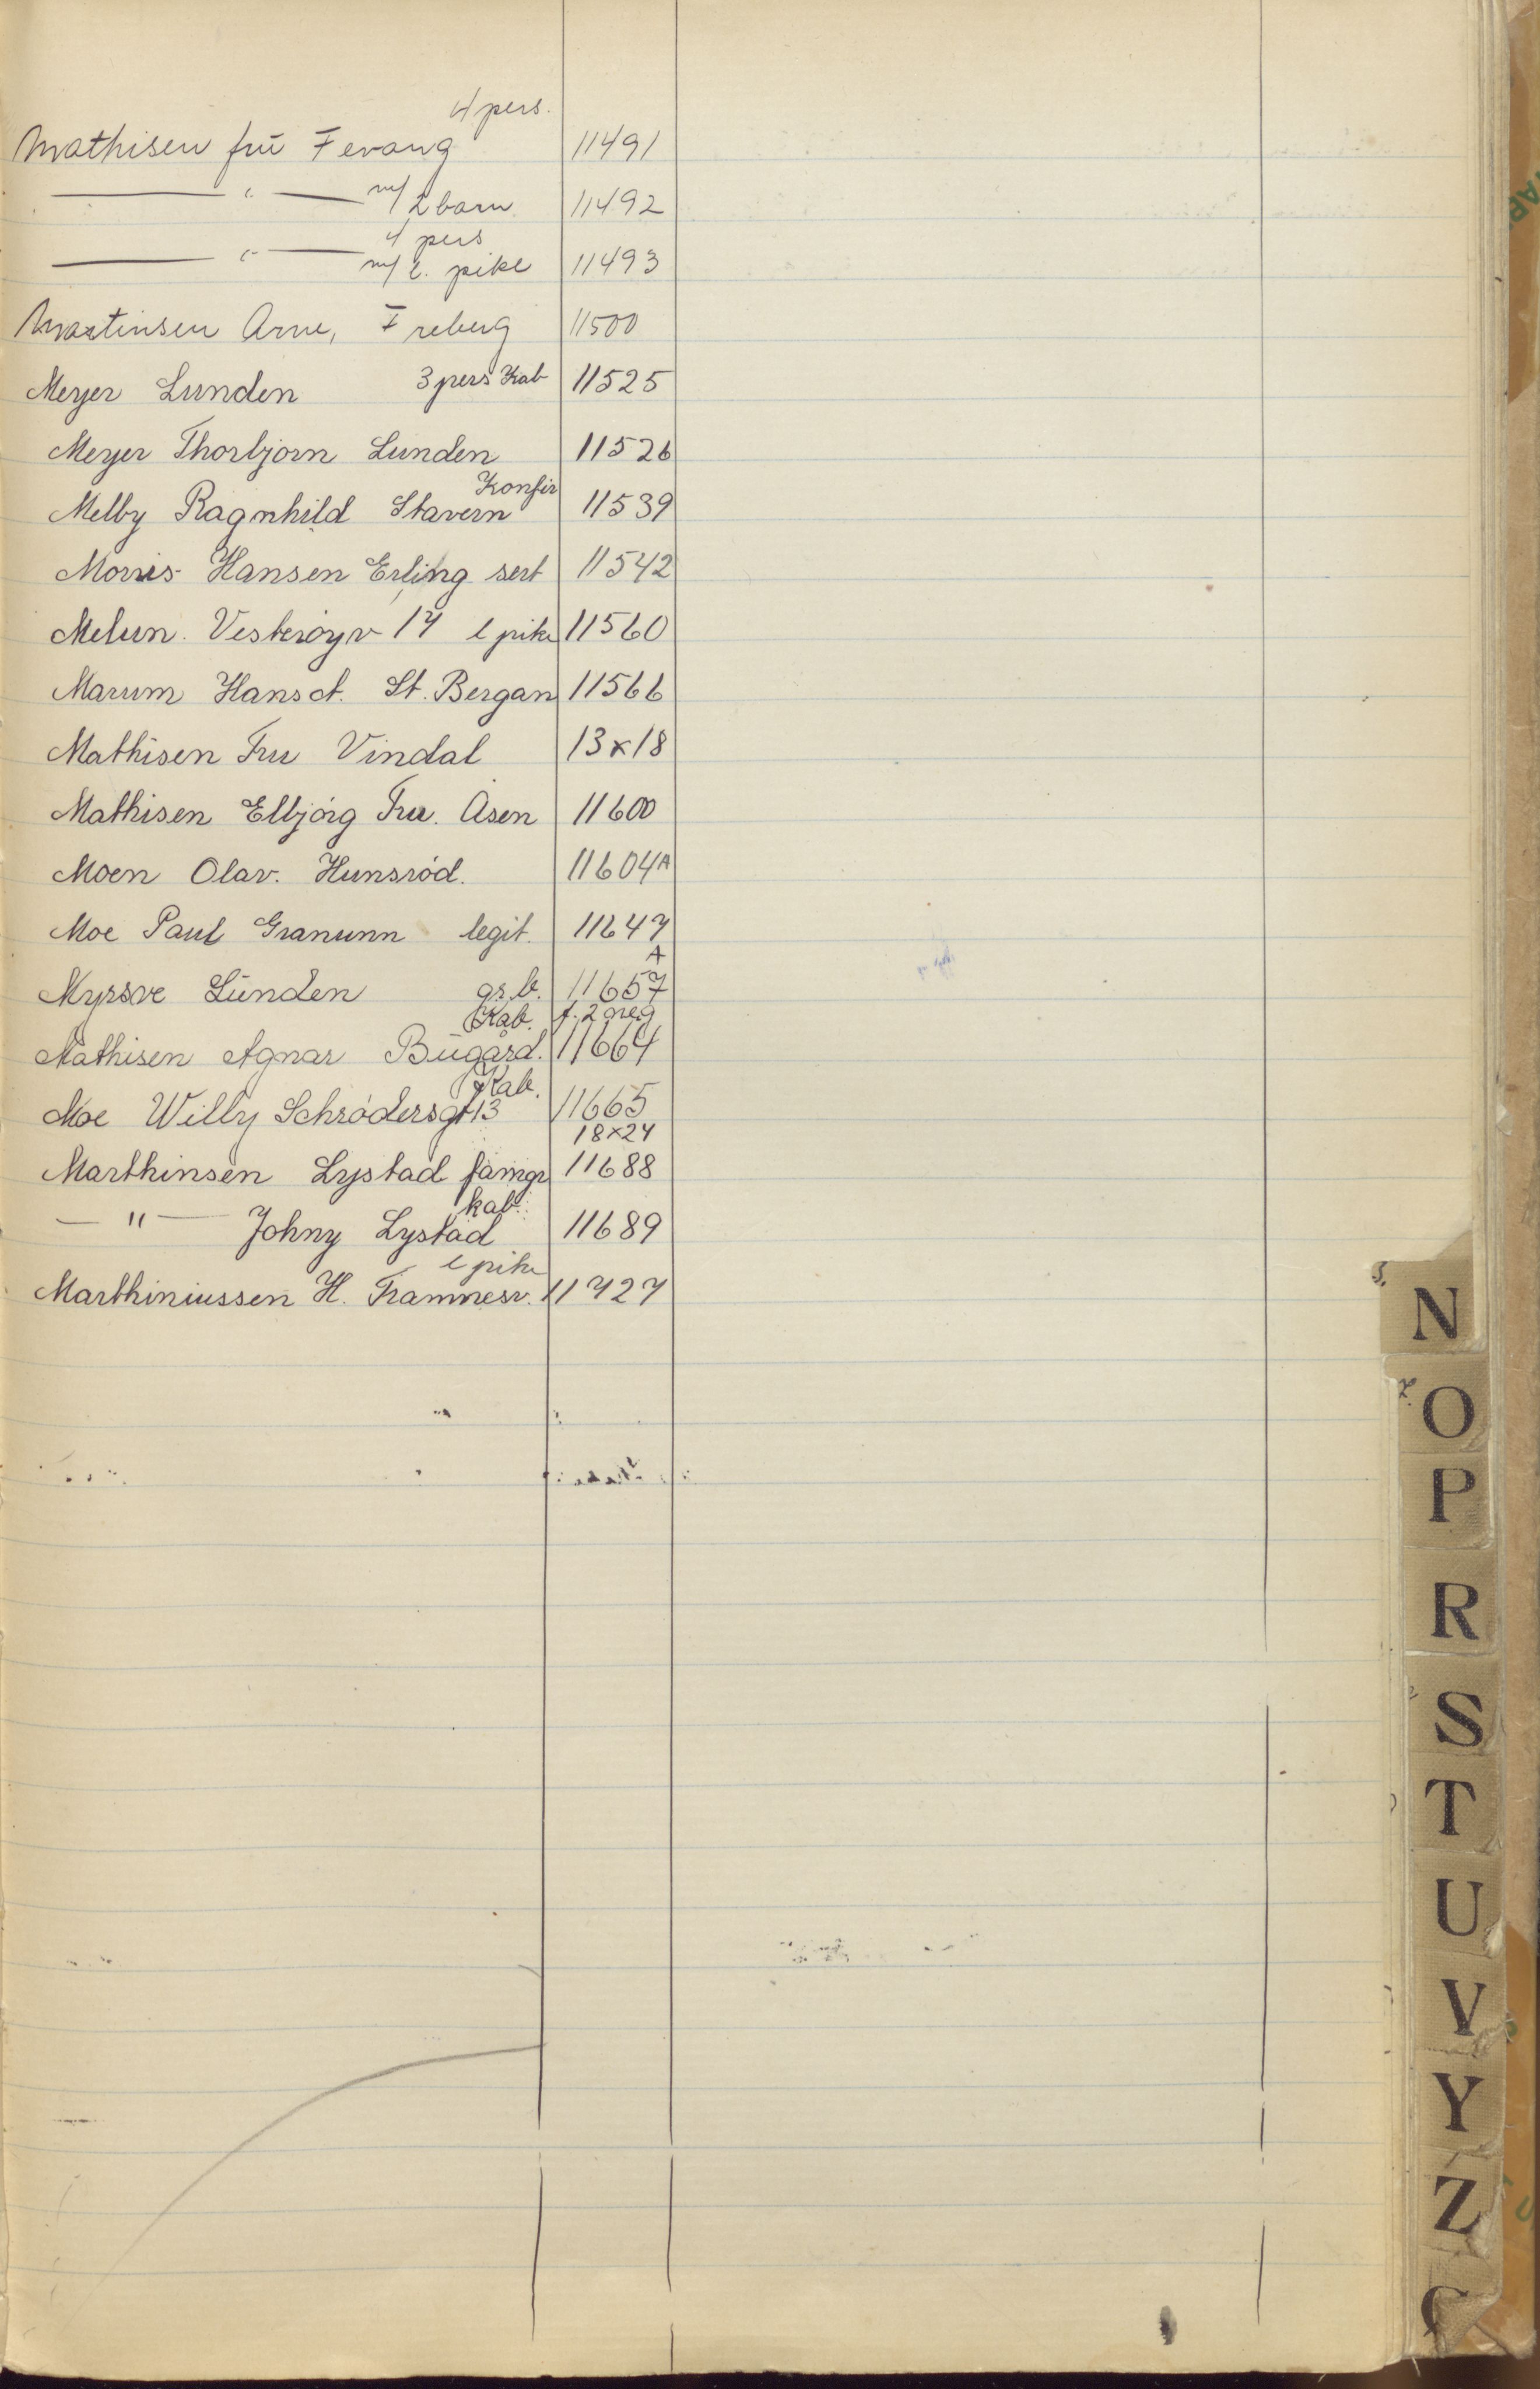 4 pers.
Mathisen frū Fevang 11491
— " — m/ 2 barn 11492
4 pers
— " — m/ l. pike 11493
Martinsen Arne, Freberg 11500
Meyer Lunden 3 pers Kab 11525
Meyer Thorbjørn Lunden 11526
Konfir
Melby Ragnhild Stavern 11539
Morris-Hansen Erling sert 11542
Melum. Vesterøyv 17 l pike 11560
Marum Hans A. St. Bergan 11566
Mathisen Fru Vindal 13x18
Mathisen Elbjørg Fru. Åsen 11600
Moen Olav. Hunsrød. 11604A
Moe Paul Granunn legit. 11647
A
Myrsve Lūnden gs.b. 11657
Kab. f. 2 neg
Mathisen Agnar Būgård. 11664
Kab.
Moe Willy Schrødersgt 13 11665
18x24
Marthinsen Lystad famgr 11688
kab.
— " — Johny Lystad 11689
l pike
Marthiniussen H. Framnesv. 11727
N
O
P
R
S
T
U
V
Y
Z